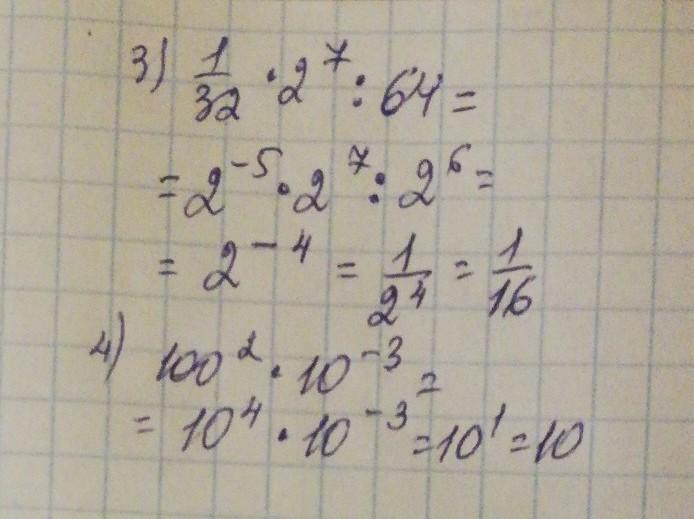 3) 1/32 · 2^7 : 64 =
= 2^-5 · 2^7 : 2^6 =
= 2^-4 = 1/2^4 = 1/16
4) 100^2 · 10^-3 =
= 10^4 · 10^-3 = 10^1 = 10